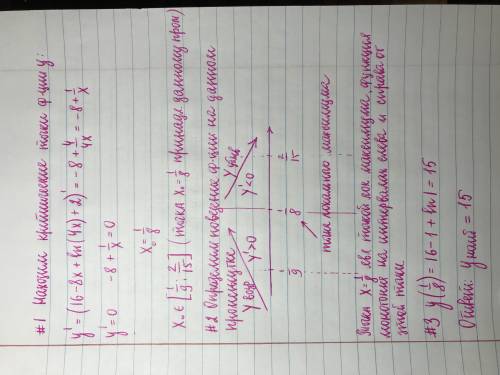 #1 Находим критические точки ф-ции y:
y' = (16-8x+ln(4x)+2)' = -8 + 4/4x = -8 + 1/x
y' = 0 -8 + 1/x = 0
x₀ = 1/8
x₀ ∈ [1/9; 2/15] (точка x₀ = 1/8 принадл. данному пром)
#2 Определим поведение ф-ции на данном
промежутке
y возр y убыв
y' > 0 y' < 0
1/9 1/8 2/15
точка локального максимума
Точка x = 1/8 явл точкой лок максимума, функция
монотонна на интервалах слева и справа от
этой точки.
#3 y(1/8) = 16-1+ln1 = 15
Ответ: y наиб = 15